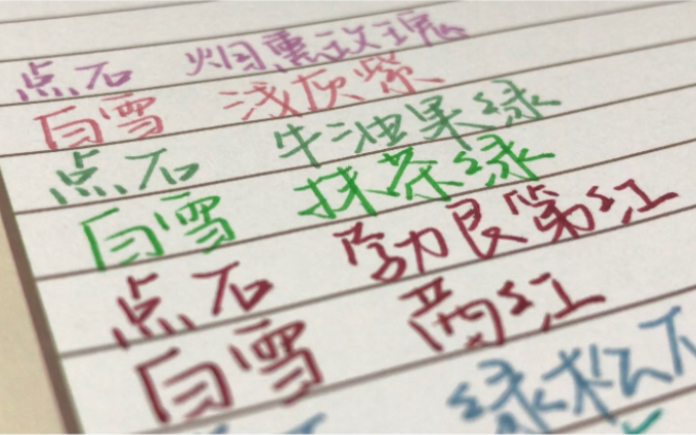 点石 烟熏玫瑰
白雪 浅灰紫
点石 牛油果绿
白雪 抹茶绿
点石 勃艮第红
白雪 酒红
绿松石